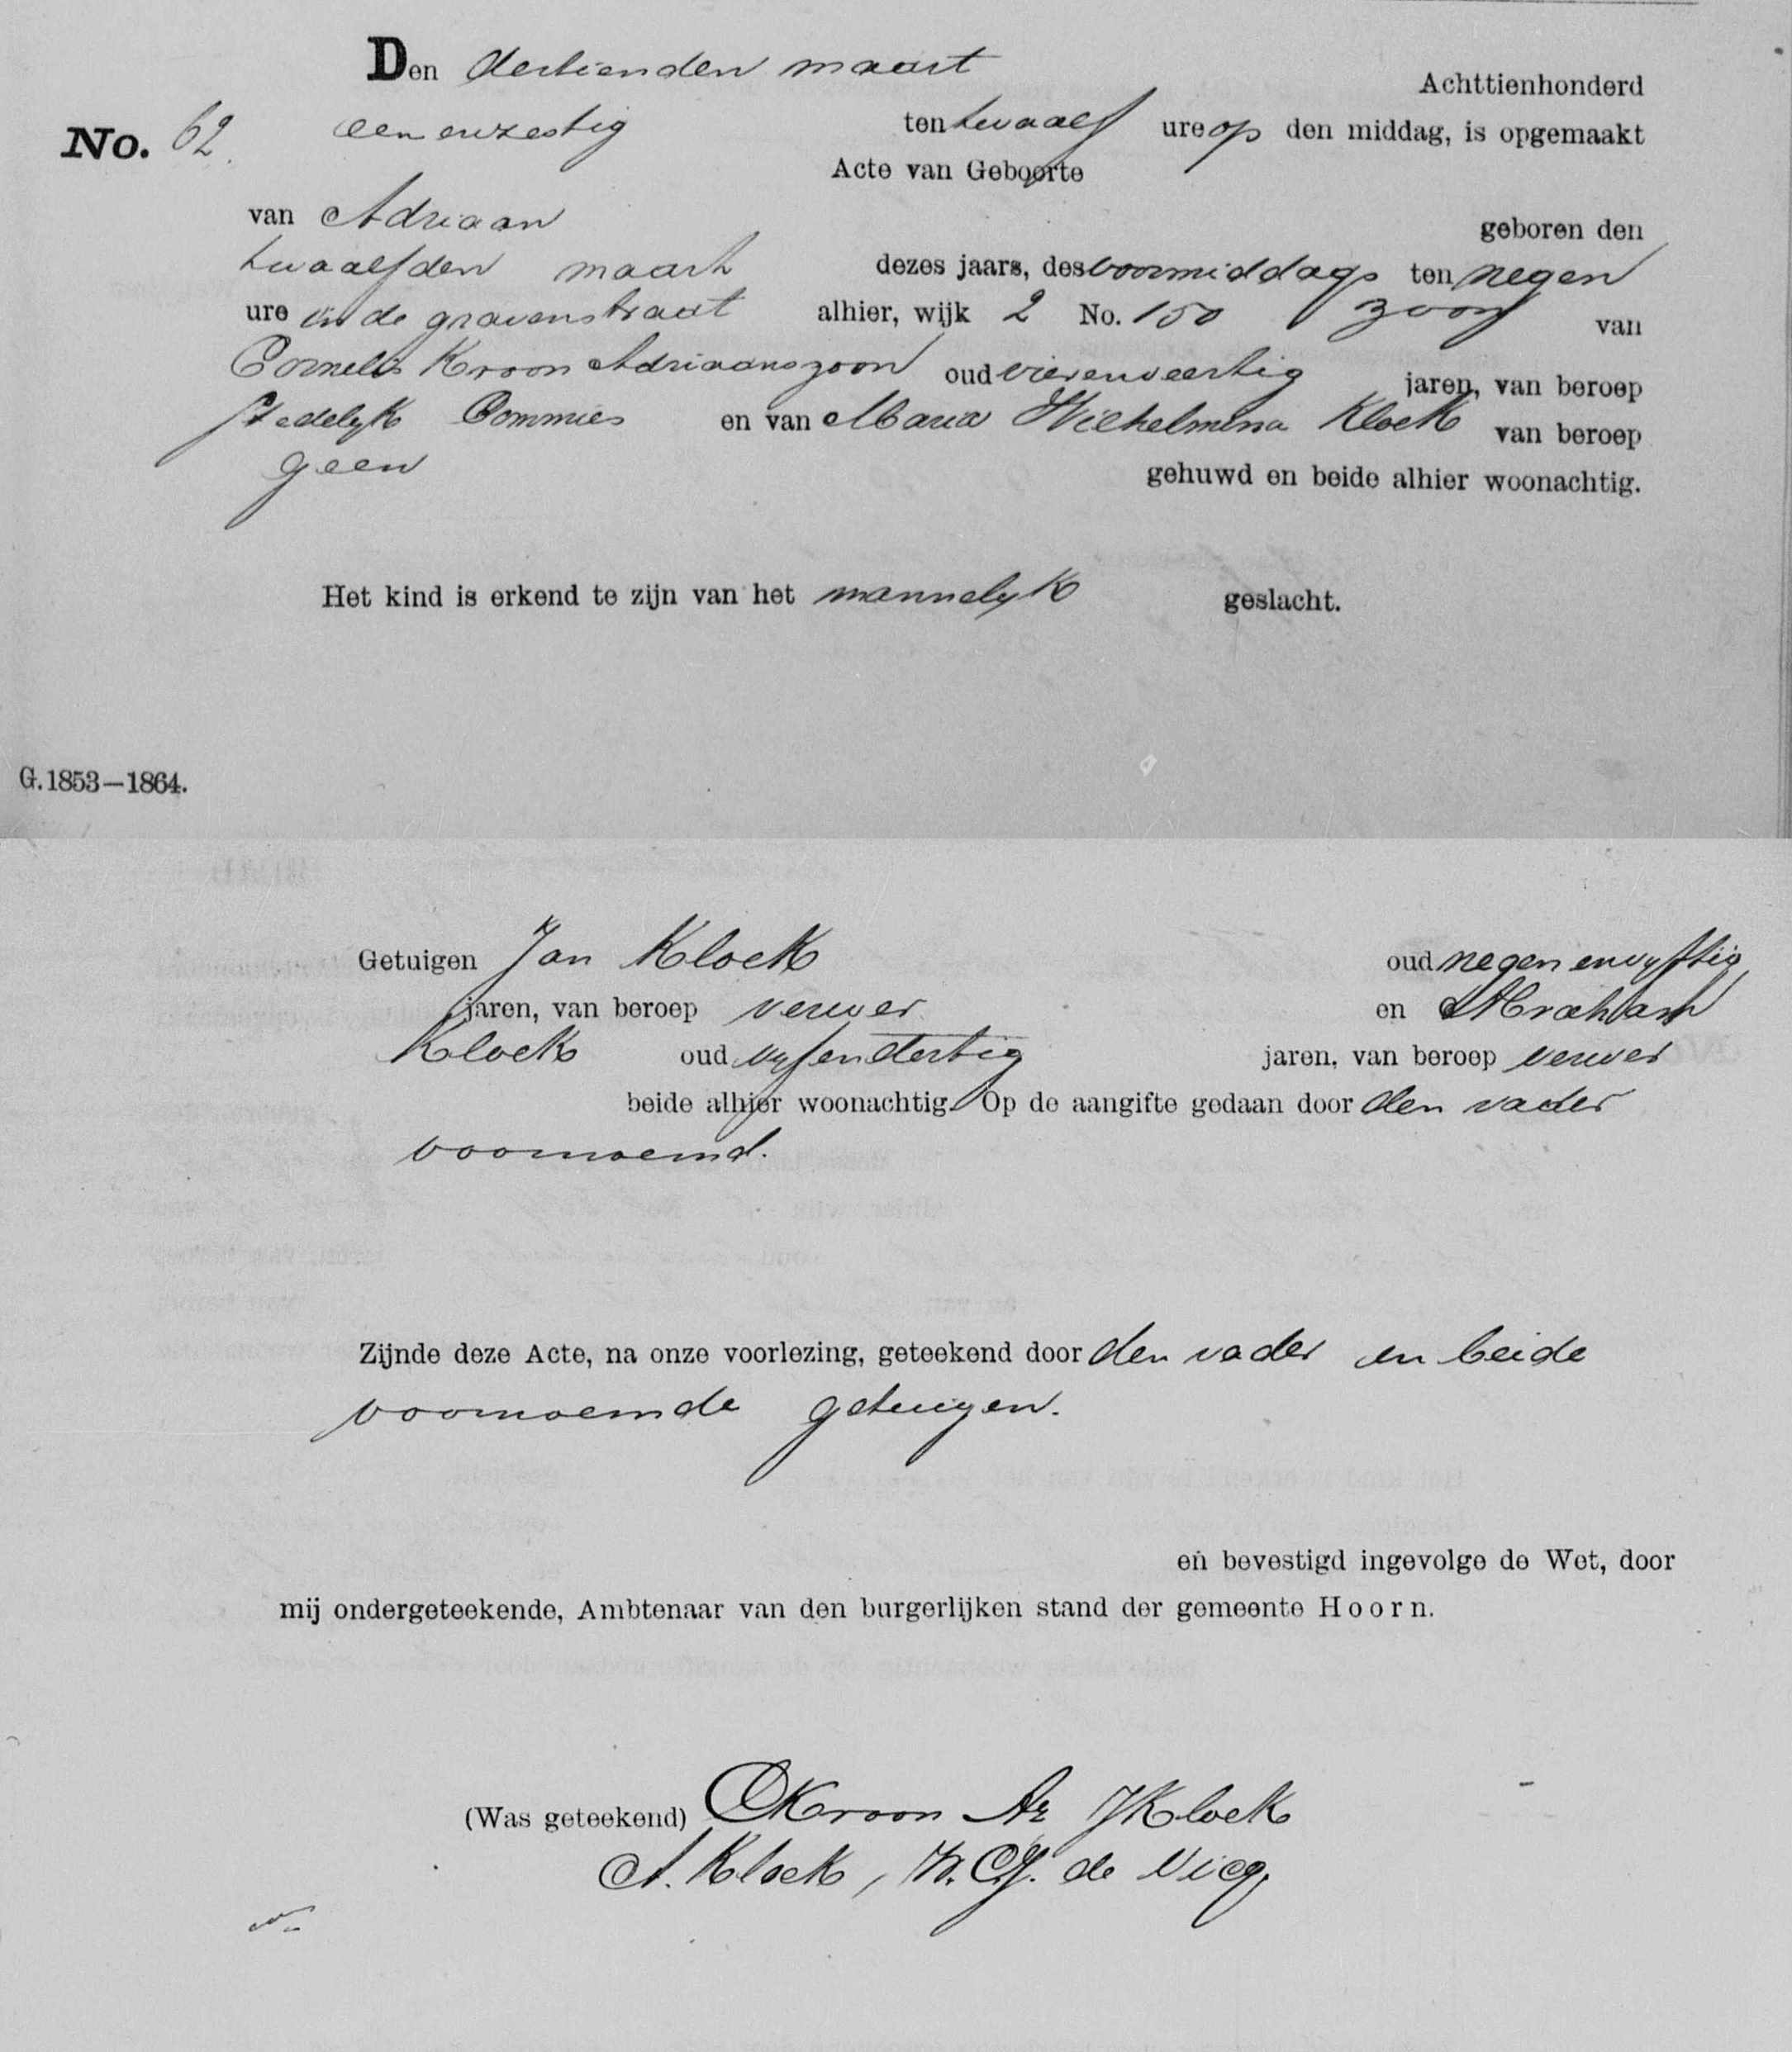 Den dertienden maart Achttienhonderd
No. 62. een en zestig ten twaalf ure op den middag, is opgemaakt
Acte van Geboorte
van Adriaan geboren den
twaalfden maart dezes jaars, des voormiddags ten negen
ure in de gravenstraat alhier, wijk 2 No. 150 zoon van
Cornelis Kroon Adriaanszoon oud vierenveertig jaren, van beroep
Stedelyk Commies en van Maria Wilhelmina Kloek van beroep
geen gehuwd en beide alhier woonachtig.
Het kind is erkend te zijn van het mannelyk geslacht.
G. 1853–1864.
Getuigen Jan Kloek oud negenenvyftig
jaren, van beroep verwer en Abraham
Kloek oud vyfendertig jaren, van beroep verwer
beide alhier woonachtig. Op de aangifte gedaan door den vader
voornoemd.
Zijnde deze Acte, na onze voorlezing, geteekend door den vader en beide
voornoemde getuigen.
en bevestigd ingevolge de Wet, door
mij ondergeteekende, Ambtenaar van den burgerlijken stand der gemeente Hoorn.
(Was geteekend) C Kroon Az J Kloek
A. Kloek, W. C. J. de Vicq,